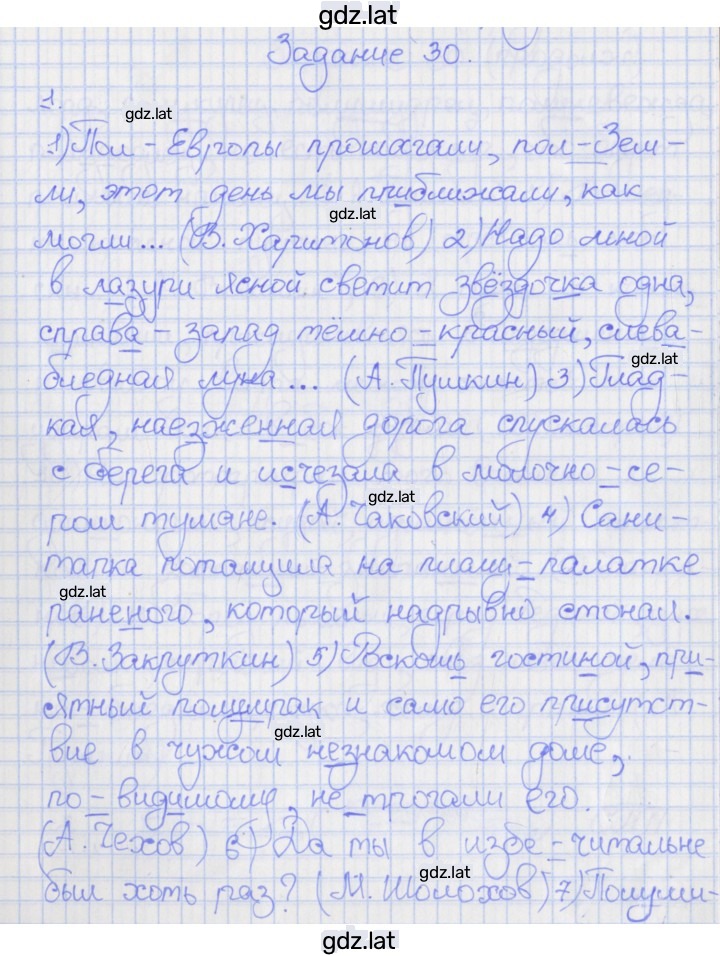 gdz.lat
Задание 30.
1.
gdz.lat
1) Пол-Европы прошагали, пол-Зем-
ли, этот день мы приближали, как
gdz.lat
могли... (В. Харитонов) 2) Надо мной
в лазури ясной светит звёздочка одна,
справа - запад тёмно-красный, слева -
gdz.lat
бледная луна... (А. Пушкин) 3) Глад-
кая, наезженная дорога спускалась
с берега и исчезала в молочно-се-
gdz.lat
ром тумане. (А. Чаковский) 4) Сани-
тарка потащила на плащ-палатке
gdz.lat
раненого, который надрывно стонал.
(В. Закруткин) 5) Роскошь гостиной, при-
ятный полумрак и само его присутст-
gdz.lat
вие в чужом незнакомом доме,
по-видимому, не трогали его.
(А. Чехов) 6) Да ты в избе-читальне
gdz.lat
был хоть раз? (М. Шолохов) 7) Полуми-
gdz.lat